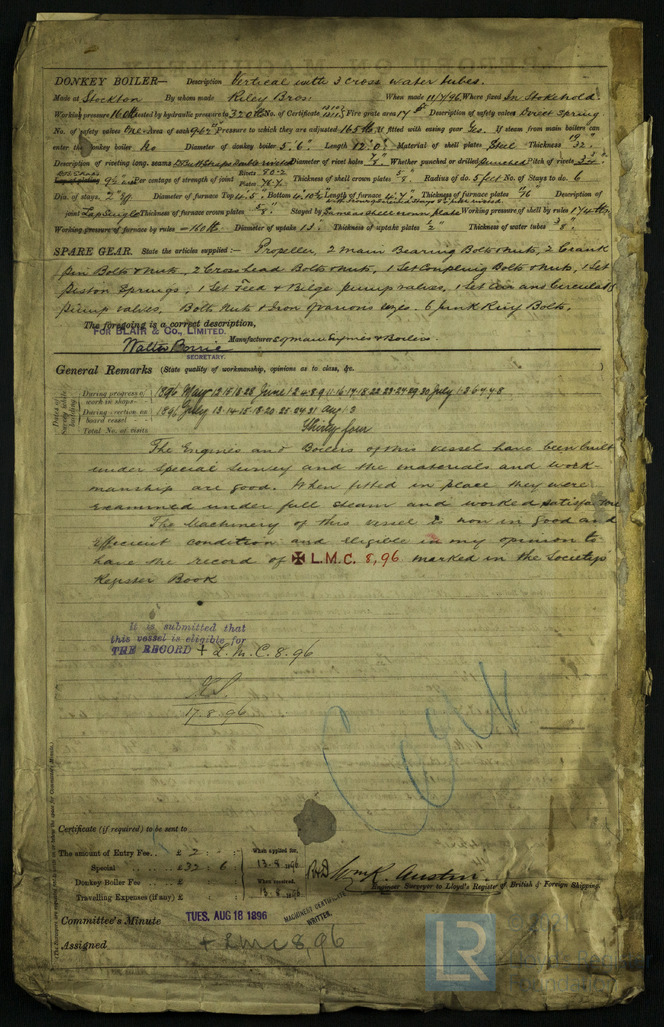 DONKEY BOILER— Description Vertical with 3 cross water tubes.
Made at Stockton By whom made Riley Bros. When made 11/7/96 Where fixed In Stokehold.
Working pressure 160lb tested by hydraulic pressure to 320lb No. of Certificate Fire grate area 17 Description of safety valves Direct Spring
No. of safety valves Area of each Pressure to which they are adjusted 165lb If fitted with easing gear Yes. If steam from main boilers can
enter the donkey boiler No Diameter of donkey boiler 5'.6" Length 12'.0" Material of shell plates Steel Thickness 19/32"
Description of riveting long. seams Diameter of rivet holes 7/8" Whether punched or drilled Punched Pitch of rivets
Lap of plating Per centage of strength of joint Rivets 80.2 Plates 76.7 Thickness of shell crown plates 5/8" Radius of do. 5 feet No. of Stays to do. 6
Dia. of stays. 2" Diameter of furnace Top 4'.5" Bottom 4'.10½" Length of furnace Thickness of furnace plates 9/16 Description of
joint Lap Single Thickness of furnace crown plates 5/8" Stayed by Same as shell crown plate Working pressure of shell by rules
Working pressure of furnace by rules 160lb Diameter of uptake 13" Thickness of uptake plates ½" Thickness of water tubes 3/8"
SPARE GEAR. State the articles supplied:— Propeller, 2 Main Bearing Bolts & Nuts, 2 Crank
pin Bolts & Nuts, 2 Crosshead Bolts & Nuts, 1 Set Coupling Bolts & Nuts, 1 Set
Piston Springs, 1 Set Feed & Bilge pump valves, 1 Set Air and Circulating
pump valves, Bolts Nuts & Iron of various sizes. 6 Junk Ring Bolts.
The foregoing is a correct description,
FOR BLAIR & Co., LIMITED. Manufacturers of Main Engines & Boilers.
Walter Borrie
SECRETARY.
General Remarks (State quality of workmanship, opinions as to class, &c.
Dates of Survey while building
During progress of work in shops— 1896 May 12 15 18 28 June 1 2 4 8 9 11 16 17 18 22 23 24 29 30 July 1 2 6 4 7 8
During erection on board vessel— 1896 July 13 14 15 18 20 22 24 31 Aug 1 3
Total No. of visits Thirty four
The Engines and Boilers of this vessel have been built
under Special Survey and the materials and work-
manship are good. When fitted in place they were
examined under full steam and worked satisfactorily
The Machinery of this vessel is now in good and
efficient condition and eligible in my opinion to
have the record of ✠ L.M.C. 8,96 marked in the Society's
Register Book
It is submitted that
this vessel is eligible for
THE RECORD + L.M.C. 8.96
17.8.96
Certificate (if required) to be sent to
The amount of Entry Fee.. £ 2 : : When applied for,
Special .. £32 : 6 : 13.8.1896
Donkey Boiler Fee .. £ : : When received,
Travelling Expenses (if any) £ : : 13.8.1896
Wm R. Austin.
Engineer Surveyor to Lloyd's Register of British & Foreign Shipping.
Committee's Minute TUES. AUG 18 1896
MACHINERY CERTIFICATE WRITTEN.
Assigned + LMC 8,96
LR
Foundation